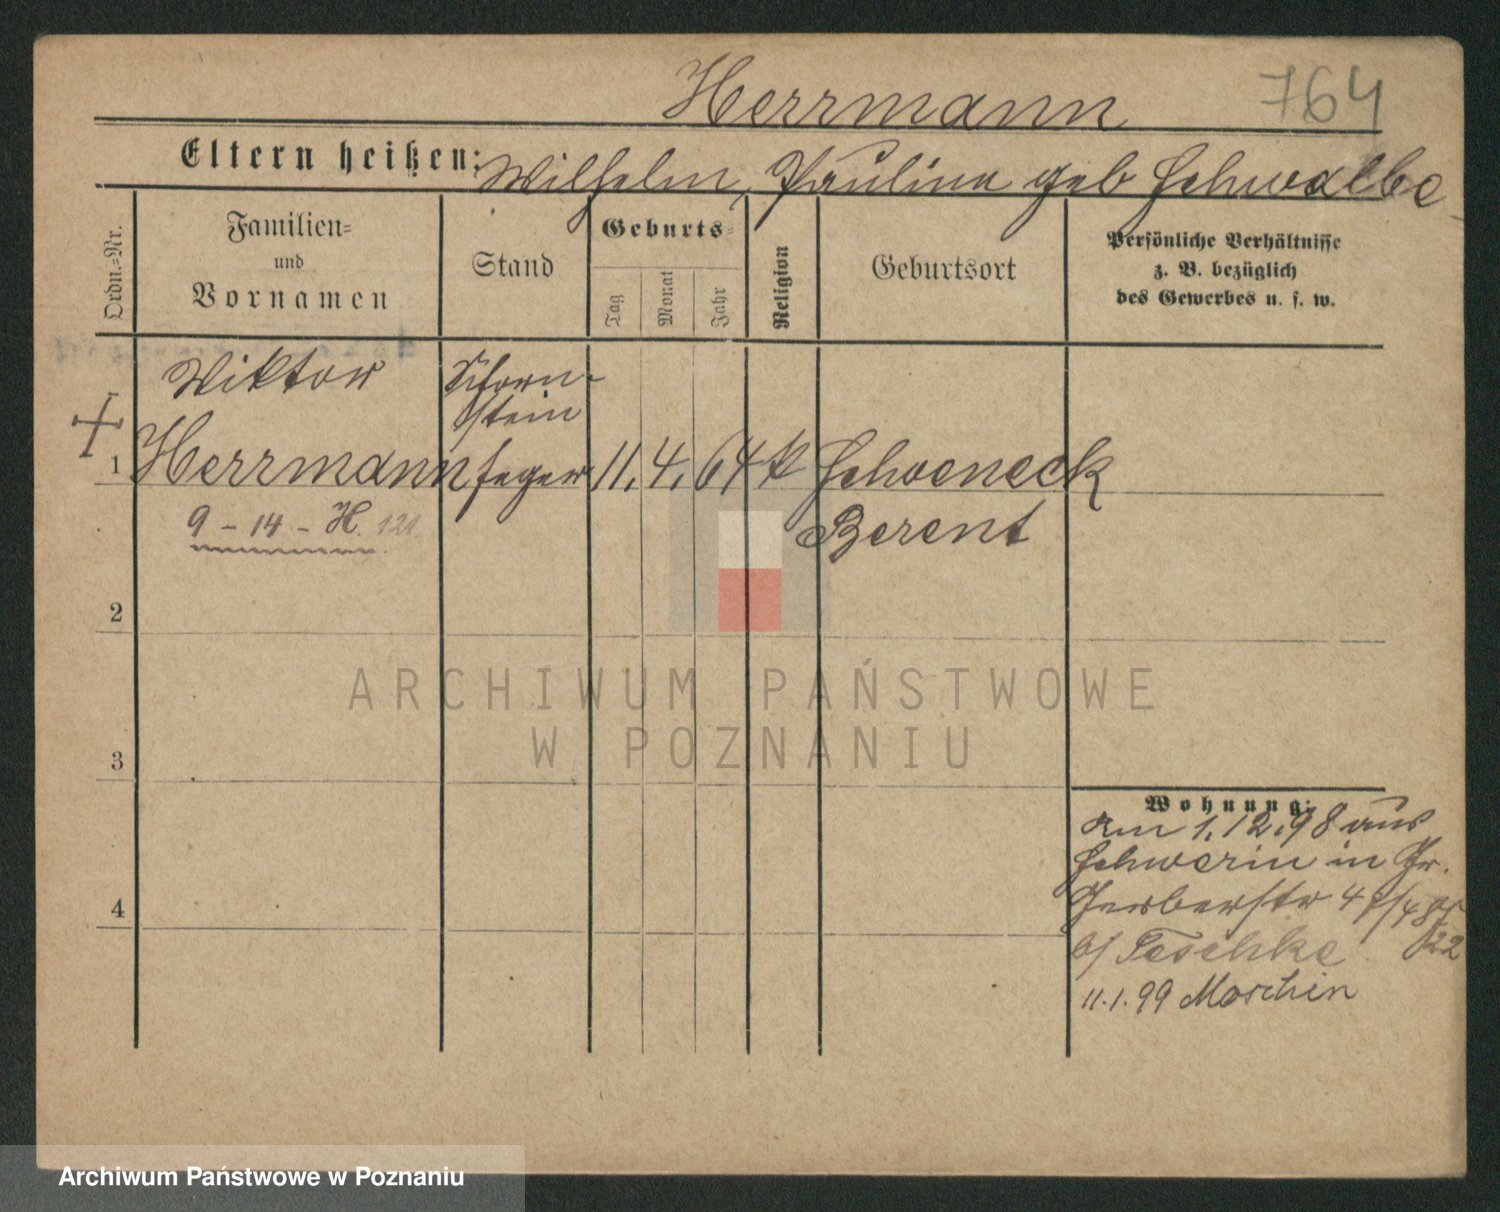 Herrmann 764
Eltern heißen: Wilhelm, Paulina geb Schwalbe
Ordn.=Nr.
Familien=
und
Vornamen
Stand
Geburts=
Tag
Monat
Jahr
Religion
Geburtsort
Persönliche Verhältnisse
z. B. bezüglich
des Gewerbes u. s. w.
Wiktor Schorn-
stein
1 Herrmann feger 11. 4. 64 k Schoeneck
9 - 14 - H. 121. Berent
2
ARCHIWUM PAŃSTWOWE
W POZNANIU
3
Wohnung:
Am 1.12.98 aus
Schwerin in Pr.
Gerberstr 47/48
b/ Teschke 22
11.1.99 Moschin
4
Archiwum Państwowe w Poznaniu